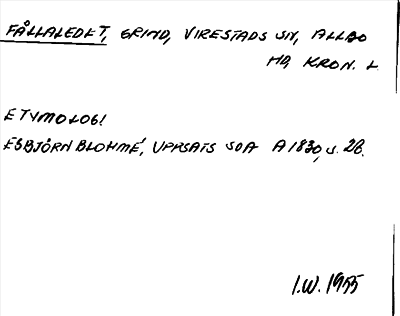 FÅLLALEDET, GRIND, VIRESTADS SN, ALLBO
HD, KRON. L
ETYMOLOGI
ESBJÖRN BLOHMÉ, UPPSATS SOA A 1830, s. 28.
I.W. 1955